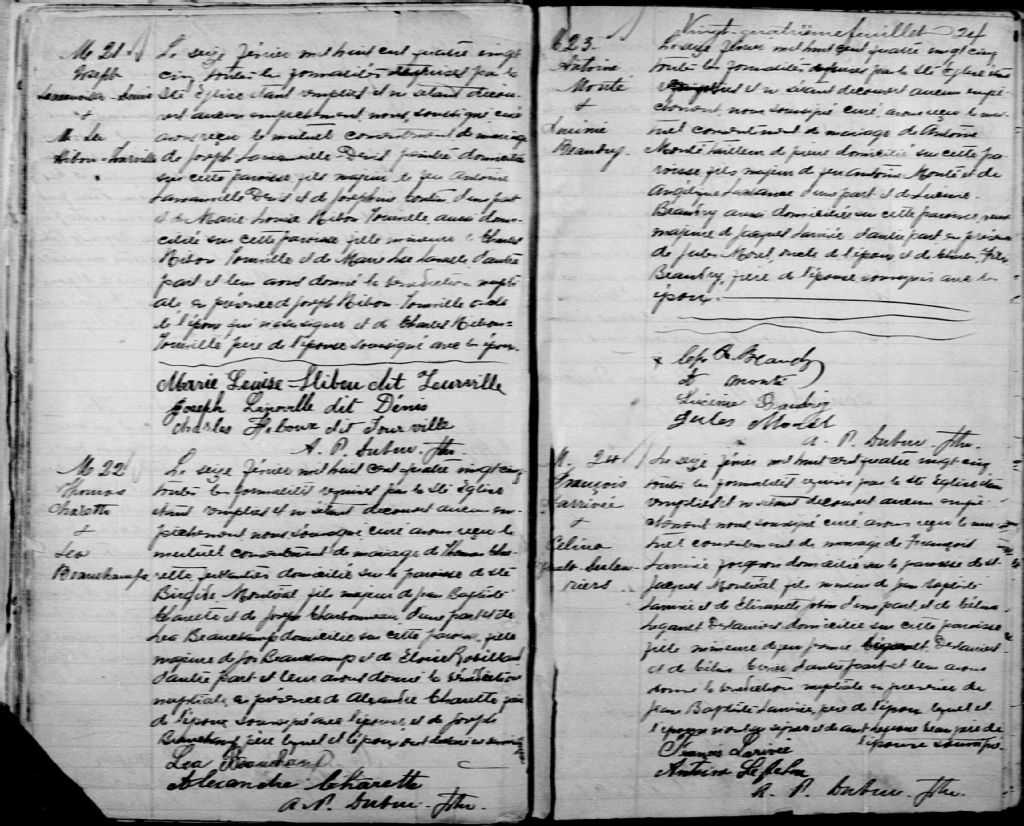 M 21
Joseph
Lanouville-Denis
&
M. Lse
Hibou-Tourville
Le seize février mil huit cent quatre vingt
cinq toutes les formalités requises par la
Ste Eglise étant remplies et ne s'étant décou-
vert aucun empêchement, nous, soussigné curé
avons reçu le mutuel consentement de mariage
de Joseph Denis peintre domicilié
sur cette paroisse fils majeur de feu Antoine
Denis et de Josephine d'une part
et de Marie Louise Hibou Tourville aussi domi-
ciliée sur cette paroisse fille mineure de Charles
Hibou Tourville et de Marie d'autre
part et leur avons donné la bénédiction nupti-
ale en présence de Joseph Hibou-Tourville oncle
de l'époux qui n'a su signer et de Charles Hibou-
Tourville père de l'épouse soussigné avec les époux.
Marie Louise Hibou dit Tourville
Joseph dit Dénis
Charles Heboux dit Tourville
A. P. Dubuc Ptre.
M 22
Thomas
Charette
&
Lea
Beauchamps
Le seize février mil huit cent quatre vingt cinq
toutes les formalités requises par la Ste Eglise
étant remplies et ne s'étant découvert aucun em-
pêchement nous, soussigné, curé avons reçu le
mutuel consentement de mariage de Thomas Cha-
rette domicilié sur la paroisse de Ste
Brigide Montréal fils majeur de Jean Baptiste
Charette et de Charbonneau, d'une part et de
Léa Beauchamp domiciliée sur cette paroisse, fille
majeure de Jos Beauchamp et de Eloise Robillard
d'autre part et leur avons donné la bénédiction
nuptiale, en présence de Alexandre Charette, père
de l'époux soussigné avec l'épouse, et de Joseph
Beauchamp père lequel et l'époux ont déclaré ne savoir signer
Lea Beauchamp
Alexandre Charette
A. P. Dubuc Ptre.
Vingt-quatrième feuillet 24
M 23.
Antoine
Monté
&
Lucinie
Beaudry
Le seize février mil huit cent quatre vingt cinq
toutes les formalités requises par la Ste Eglise étant
remplies et ne s'étant découvert aucun empê-
chement, nous soussigné curé, avons reçu le mu-
tuel consentement de mariage de Antoine
Monté tailleur de pierre domicilié sur cette pa-
roisse fils majeur de feu Antoine Monté et de
Angélique d'une part et de Lucinie
Beaudry aussi domiciliée sur cette paroisse,
majeure de Jacques d'autre part en présence
de Jules Morel, oncle de l'époux et de
Beaudry, père de l'épouse soussignés avec les
époux.
Beaudry
Monté
Lucinie Beaudry
Jules Morel
A. P. Dubuc Ptre.
M. 24
François
Larrivée
&
Célina
Deslau-
riers
Le seize février mil huit cent quatre vingt cinq
toutes les formalités requises par la Ste Eglise étant
remplies et ne s'étant découvert aucun empê-
chement nous soussigné curé avons reçu le mu-
tuel consentement de mariage de François
Larrivée forgeron domicilié sur la paroisse de St
Jacques Montréal fils mineur de Jean Baptiste
Larrivée et de Elisabeth d'une part et de Célina
Legault Deslauriers domiciliée sur cette paroisse
fille mineure de feu Legault Deslauriers
et de d'autre part et leur avons
donné la bénédiction nuptiale en présence de
Jean Baptiste Larrivée, père de l'époux lequel et
l'épouse n'ont su signer et de Antoine beau père de
l'épouse soussigné.
François Larivée
Antoine
A. P. Dubuc Ptre.